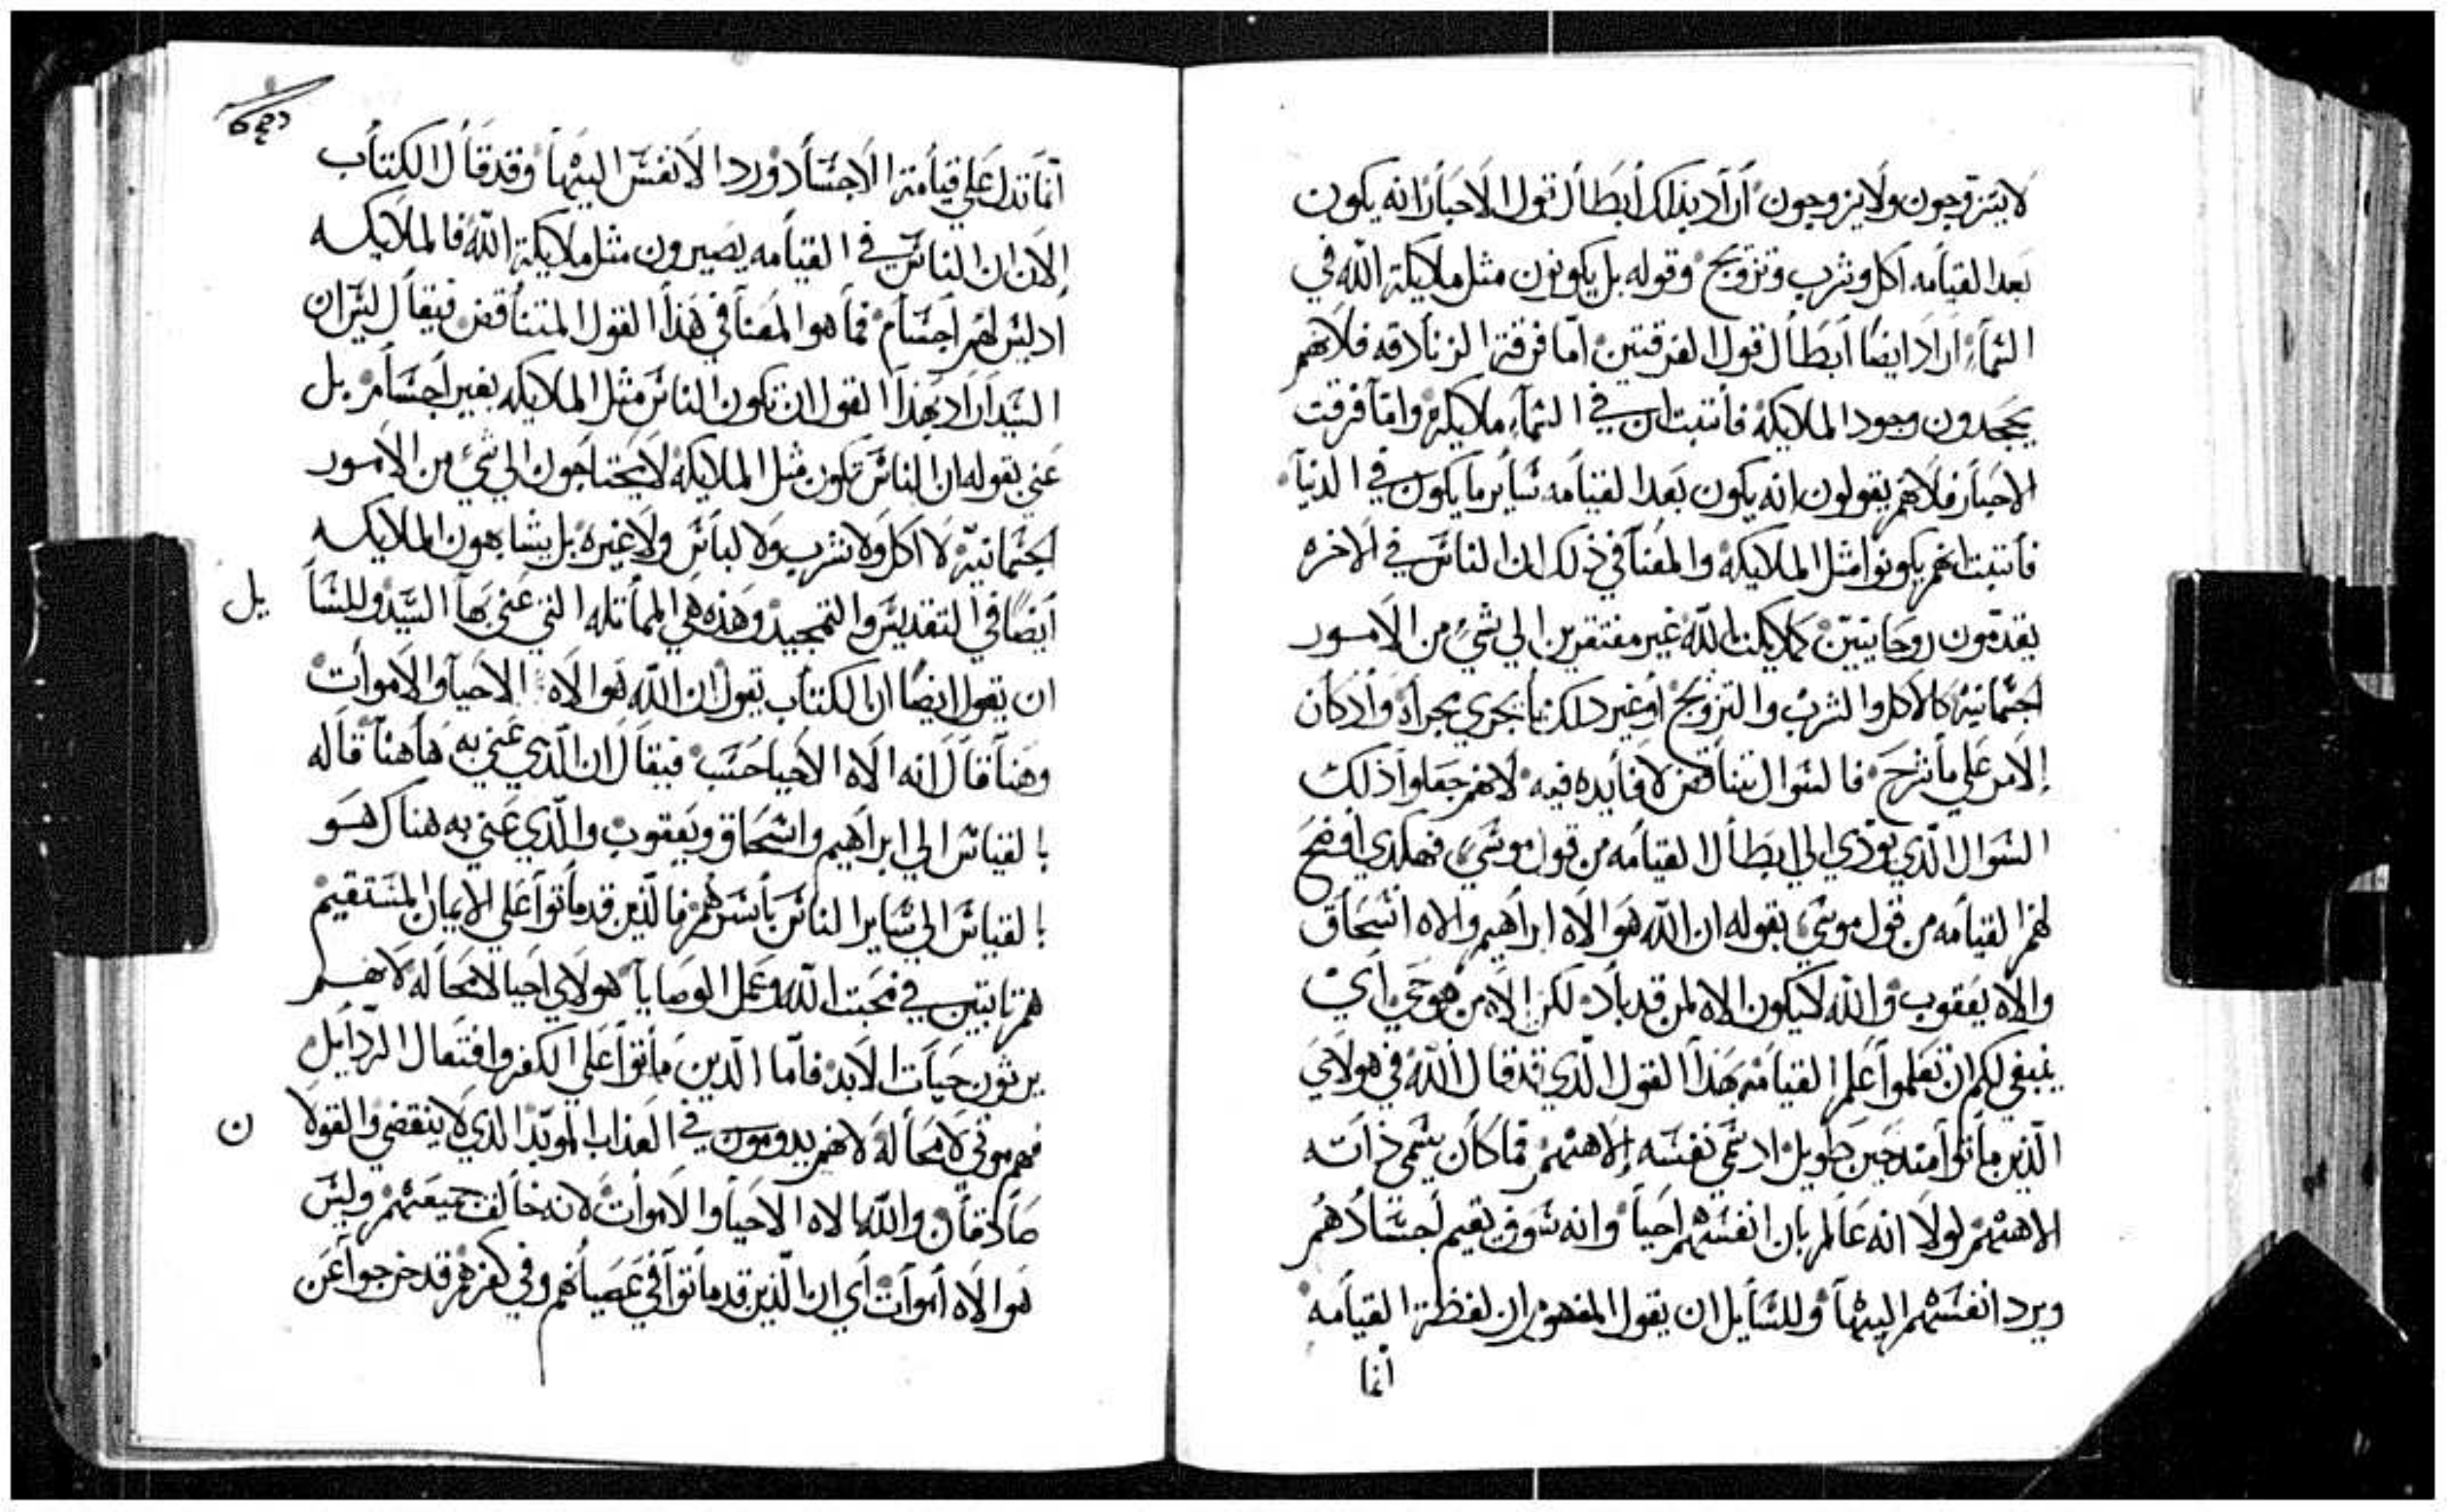 لا يتزوجون ولا يزوجون أراد بذلك أبطال قول الاحبار انه يكون
بعد القيامه اكل وشرب وتزويج وقوله بل يكونون مثل ملايكة الله في
السماء اراد ايضًا أبطال قول الفرقتين اما فرقة الزنادقه فلانهم
يجحدون وجود الملايكه فأثبت ان في السماء ملايكة واما فرقت
الاحبار فلانهم يقولون انه يكون بعد القيامه سأير ما يكون في الدنيا
فأثبت انهم يكونوا مثل الملايكه والمعنا في ذلك ان الناس في الاخره
يقدمون روحانيين كملايكت الله غير مفتقرين الي شيء من الامور
الجسمانيه كالاكل والشرب والتزويج أو غير دلك مما يجري مجراه وأدكان
الامر علي ما شرح فالسوال يتناقض لا فأيده فيه لانهم جعلوا ذلك
السوال الذي يودي الي ابطال القيامه من قول موسي فهكدي أوضح
لهم القيامه من قول موسي بقوله ان الله هو الاه ابراهيم والاه اسحاق
والاه يعقوب والله لا يكون الاه لمن قد باد لكن الاه من هو حي أي
ينبغي لكم ان تعلموا علم القيامه بهذا القول الذي قد قال الله في هولاي
الذين ماتوا منذ حين طويل اد سمي نفسه الاههم فما كان يسمي ذاته
الاههم لولا انه عالم بان انفسهم احيا وانه سوف يقيم اجسادهم
ويرد انفسهم اليها وللسأيل ان يقول المفهوم ان لفظة القيامه
أنما
دقع
أنما تدل علي قيامة الاجساد ورد الانفس اليها وقد قال الكتاب
الان ان الناس في القيامه يصيرون مثل ملايكة الله فالملايكه
اد ليس لهم أجسام فما هو المعنا في هذا القول المتناقض فيقال ليس ان
السيد أراد بهذا القول ان تكون الناس مثل الملايكه بغير أجسام بل
عني بقوله ان الناس تكون مثل الملايكه لا يحتاجون الي شيء من الامور
الجسمانيه لا أكل ولا شرب ولا لباس ولا غيره بل يشابهون الملايكه
أيضًا في التقديس والتمجيد وهذه هي المماثله التي عني بها السيد وللسا
يل
ان يقول ايضًا ان الكتاب يقول ان الله هو الاه الاحيا والاموات
وهنا قال انه الاه الاحيا حسب فيقال ان الذي عني به هاهنا قاله
بالقياس الي ابراهيم واسحاق ويعقوب والذي عني به هناك هو
بالقياس الي سأير الناس بأسرهم فالذين قد ماتوا علي الايمان المستقيم
هم ثابتين في محبت الله وعمل الوصايا هولاي احيا لا محاله لانهم
يرثون حيات الابد فاما الذين ماتوا علي الكفر وافتعال الردايل
فهم موتي لا محاله لانهم يدومون في العذاب الموبد الذي لا ينقضي والقولا
ن
صادقان والله الاه الاحيا والاموات لانه خالف جميعهم وليس
هو الاه أموات أي ان الذين قد ماتوا في عصيانهم وفي كفرهم قد خرجوا عن